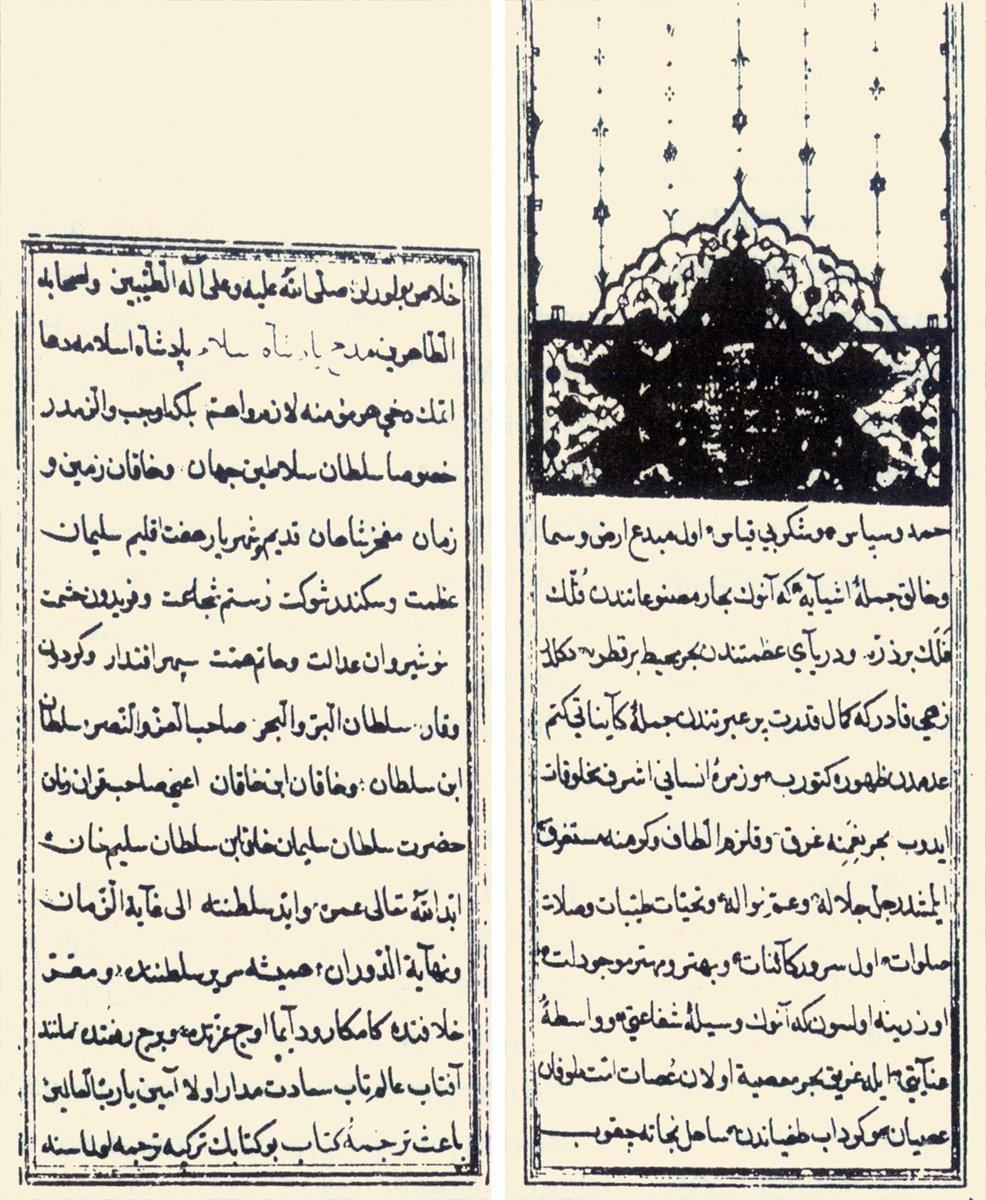 حمد وسپاس وشكر بي قياس اول مبدع ارض وسما
وخالق جملۀ اشيايه كه آنوك بحار مصنوعاتندن فُلك
فَلَك بر ذرّه ودرياي عظمتندن بحر محيط بر قطره دكلدر
زهي قادر كه كمال قدرت بر عبرتندن جملۀ كايناتي كتم
عدمدن ظهوره كتورب وزمرۀ انساني اشرف مخلوقات
ايدوب بحر نِعَمِنه غرق وقلزم الطاف وكرمنه مستغرق
ايلمشدر جلّ جلاله وعمّ نواله وتحيّات طيّبات وصلات
صلوات اول سرور كائنات وبهتر ومهتر موجودات
اوزرينه اولسون كه آنوك وسيلۀ شفاعتي وواسطۀ
عنايتي ايله غريق بحر معصية اولان عُصات امّت طوفان
عصيان وكرداب طغياندن ساحل نجاته چقوب
خلاص بولورلر صلّى الله عليه وعلى آله الطّيّبين واصحابه
الطّاهرين مدح پادشاه اسلام پادشاه اسلامه دعا
اتمك دخي هر مؤمنه لازم واهمّ بلكه واجب والزمدر
خصوصا سلطان سلاطين جهان وخاقان زمين و
زمان مفخر شاهان قديم وشهريار هفت اقليم سليمان
عظمت وسكندر شوكت رستم شجاعت وفريدون حشمت
نوشيروان عدالت وحاتم همّت سپهر اقتدار وكردون
وقار سلطان البرّ والبحر صاحب العزّ والنّصر سلطان
ابن سلطان وخاقان ابن خاقان اعني صاحب قران زمان
حضرت سلطان سليمان خان ابن سلطان سليم خان
ابّد الله تعالى عمره وايّد سلطنته الى غاية الزّمان
ونهاية الدّوران هميشه سرير سلطنتده ومقرّ
خلافتده كامكار ودايما اوج عزّتده وبرج رفعتده مانند
آفتاب عالم تاب سعادت مدار اولا آمين يا ربّ العالمين
باعث ترجمۀ كتاب بو كتابك تركيه ترجمه اولماسنه